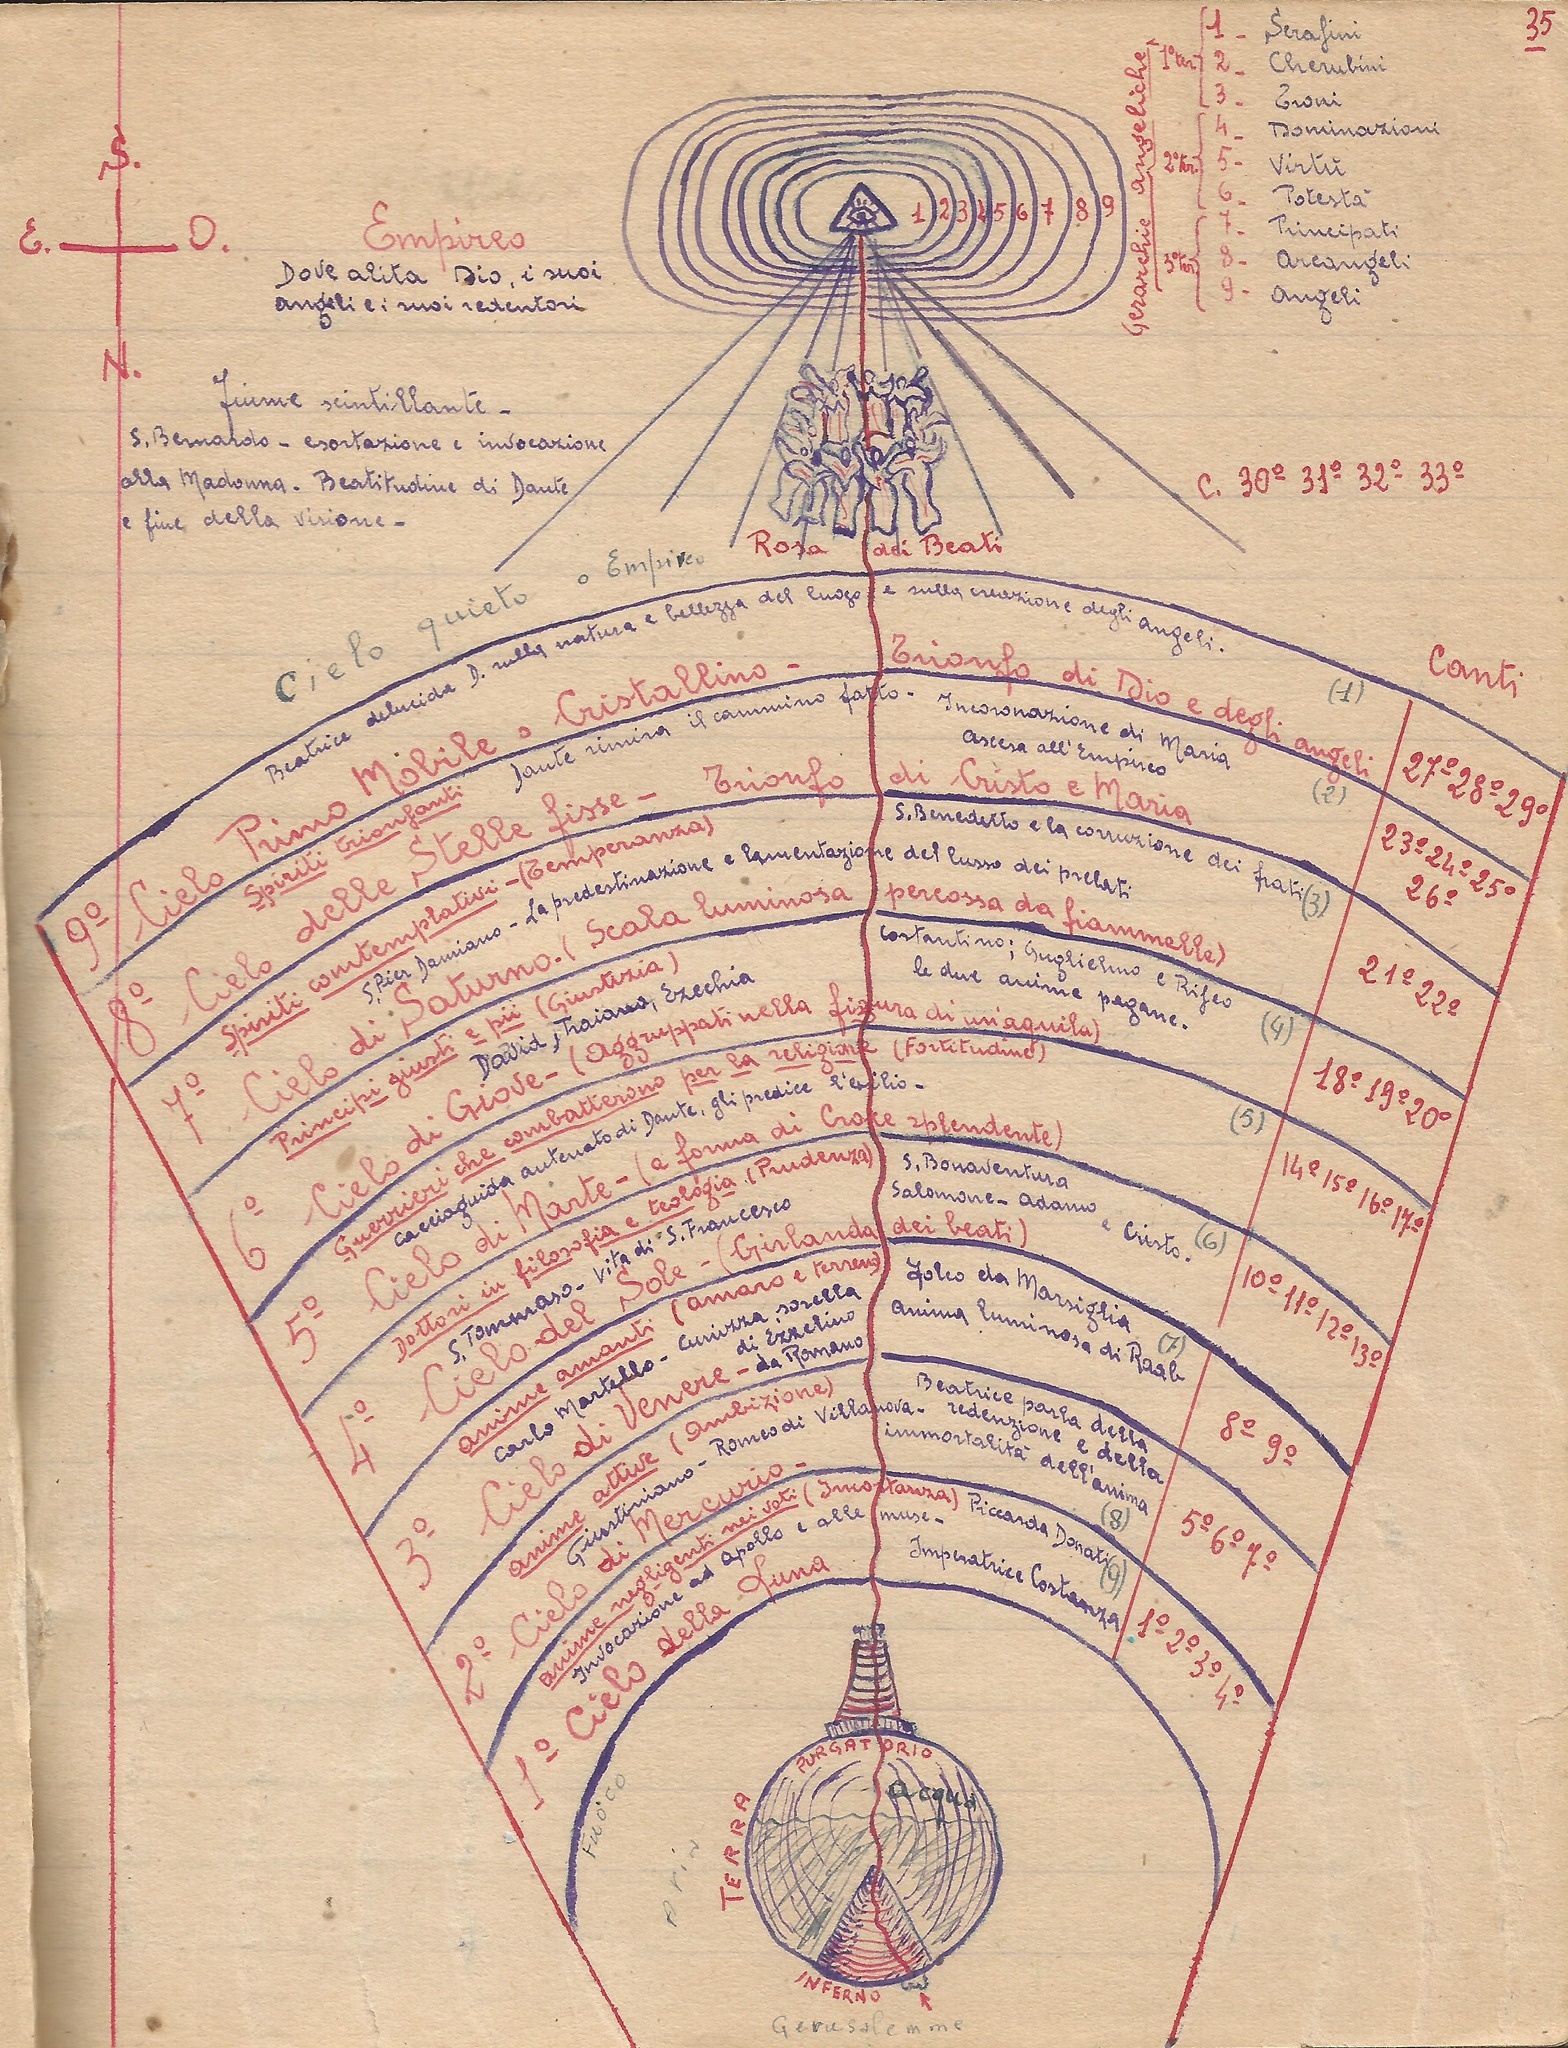 35
Gerarchie angeliche
1º ter.
1 - Serafini
2 - Cherubini
3 - Troni
2º ter.
4 - Dominazioni
5 - Virtù
6 - Potestà
3º ter.
7 - Principati
8 - Arcangeli
9 - Angeli
S.
E. O.
N.
1 2 3 4 5 6 7 8 9
Empireo
Dove alita Dio, i suoi
angeli e i suoi redentori
Fiume scintillante -
S. Bernardo - esortazione e invocazione
alla Madonna. Beatitudine di Dante
e fine della visione -
C. 30º 31º 32º 33º
Rosa dei Beati
Cielo quieto o Empireo
Beatrice delucida D. sulla natura e bellezza del luogo e sulla creazione degli angeli.
Canti
9º Cielo Primo Mobile o Cristallino - Trionfo di Dio e degli angeli
(1)
27º 28º 29º
Spiriti trionfanti
Dante rimira il cammino fatto - Incoronazione di Maria
ascesa all'Empireo
8º Cielo delle Stelle fisse - Trionfo di Cristo e Maria
(2)
23º 24º 25º
26º
Spiriti contemplativi - (Temperanza)
S. Pier Damiano - La predestinazione e lamentazione del lusso dei prelati
S. Benedetto e la corruzione dei frati
7º Cielo di Saturno. (Scala luminosa percossa da fiammelle)
(3)
21º 22º
Principi giusti e pii (Giustizia)
David, Traiano, Ezechia
Costantino; Guglielmo e Rifeo
le due anime pagane.
6º Cielo di Giove - (Aggruppati nella figura di un'aquila)
(4)
18º 19º 20º
Guerrieri che combatterono per la religione (Fortitudine)
Cacciaguida antenato di Dante, gli predice l'esilio -
5º Cielo di Marte - (a forma di Croce splendente)
(5)
14º 15º 16º 17º
Dottori in filosofia e teologia (Prudenza)
S. Tommaso - Vita di S. Francesco
S. Bonaventura
Salomone - Adamo
e Cristo.
4º Cielo del Sole - (Girlanda dei beati)
(6)
10º 11º 12º 13º
anime amanti (amaro e terreno)
Carlo Martello - Cunizza, sorella
di Ezzelino
da Romano
Folco da Marsiglia
anima luminosa di Raab
3º Cielo di Venere -
(7)
8º 9º
anime attive (ambizione)
Giustiniano - Romeo di Villanova -
Beatrice parla della
redenzione e della
immortalità dell'anima
2º Cielo di Mercurio -
(8)
5º 6º 7º
anime negligenti nei voti (Incostanza) Piccarda Donati
Invocazione ad Apollo e alle muse -
Imperatrice Costanza
1º Cielo della Luna
(9)
1º 2º 3º
4º
Fuoco
aria
PURGATORIO
Acqua
TERRA
INFERNO
Gerusalemme